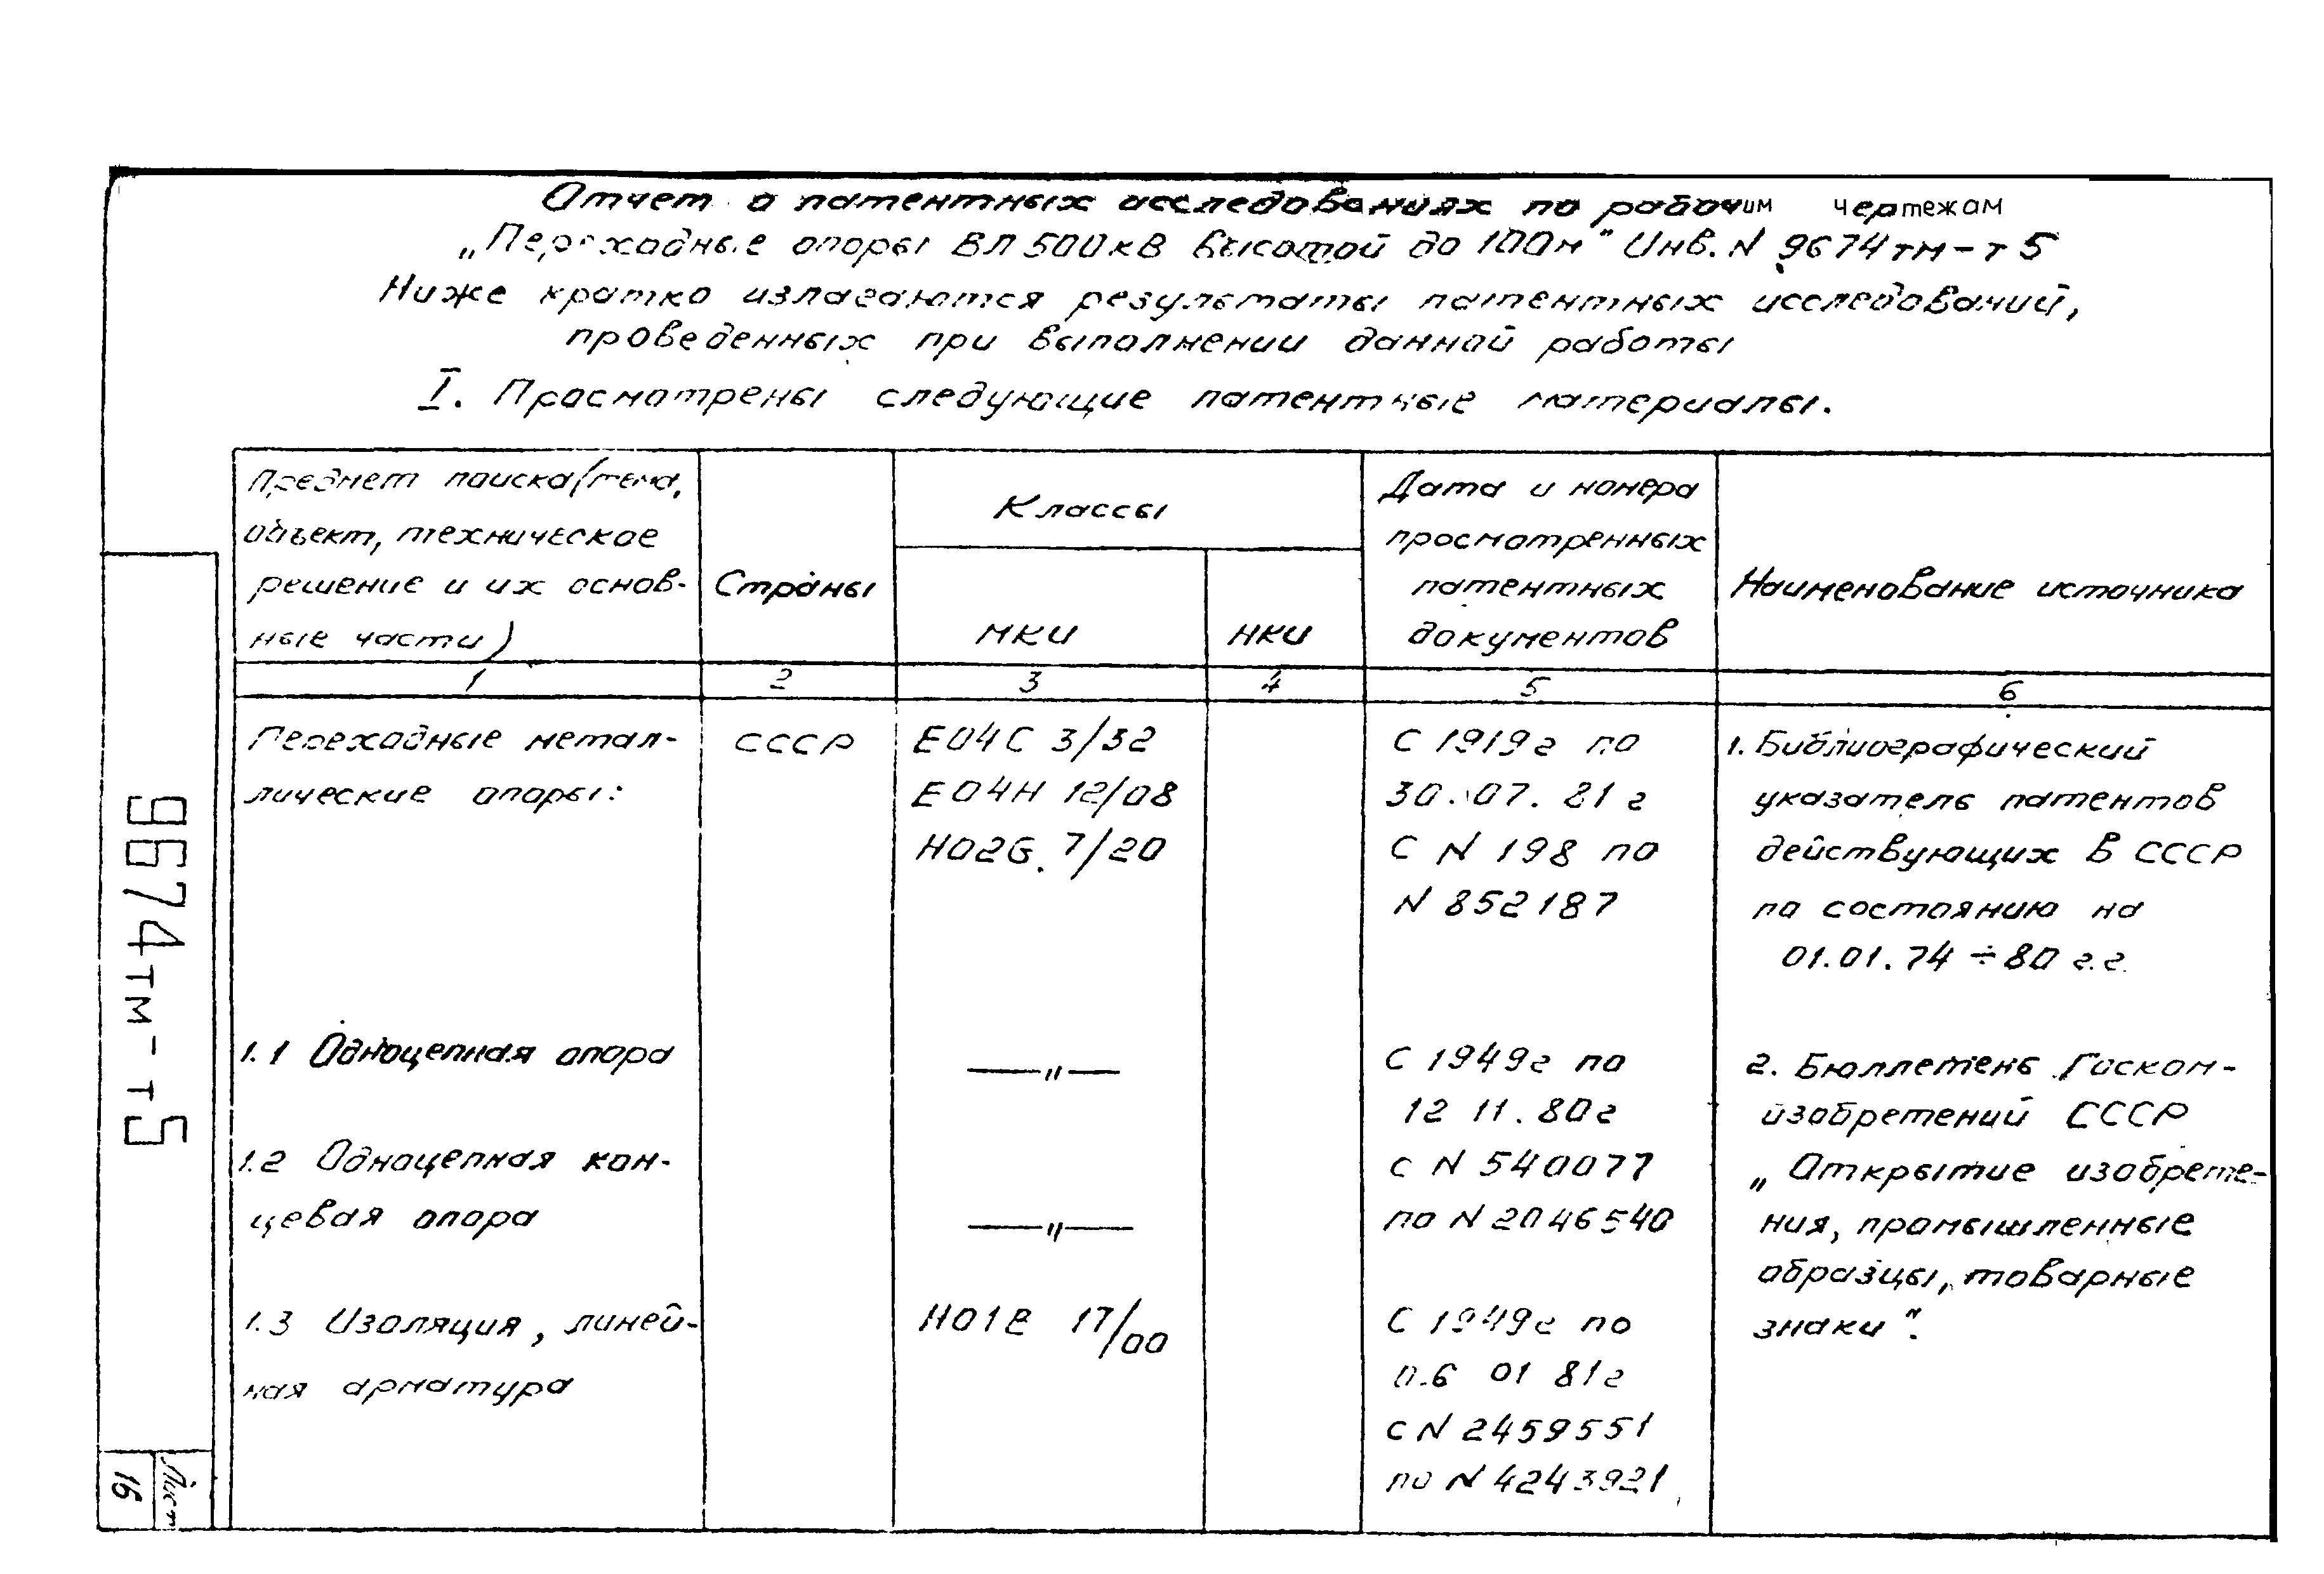 Отчет о патентных исследованиях по рабочим чертежам
„Переходные опоры ВЛ 500кВ высотой до 100м" Инв. N 9674тм-т5
Ниже кратко излагаются результаты патентных исследований,
проведенных при выполнении данной работы
I. Просмотрены следующие патентные материалы.
Предмет поиска (тема,
объект, техническое
решение и их основ-
ные части)
Страны
Классы
МКИ
НКИ
Дата и номера
просмотренных
патентных
документов
Наименование источника
1
2
3
4
5
6
Переходные метал-
лические опоры:
СССР
E04C 3/32
E04H 12/08
H02G. 7/20
С 1919г по
30.07.81г
С N 198 по
N 852187
1. Библиографический
указатель патентов
действующих в СССР
по состоянию на
01.01.74÷80 г.г.
1.1 Одноцепная опора
—"—
С 1949г по
12 11.80г
с N 540077
по N 2046540
2. Бюллетень Госком-
изобретений СССР
„Открытие изобрете-
ния, промышленные
образцы, товарные
знаки".
1.2 Одноцепная кон-
цевая опора
—"—
1.3 Изоляция, линей-
ная арматура
H01B 17/00
С 1949г по
06 01 81г
с N 2459551
по N 4243921
9674тм-т5
Лист
16